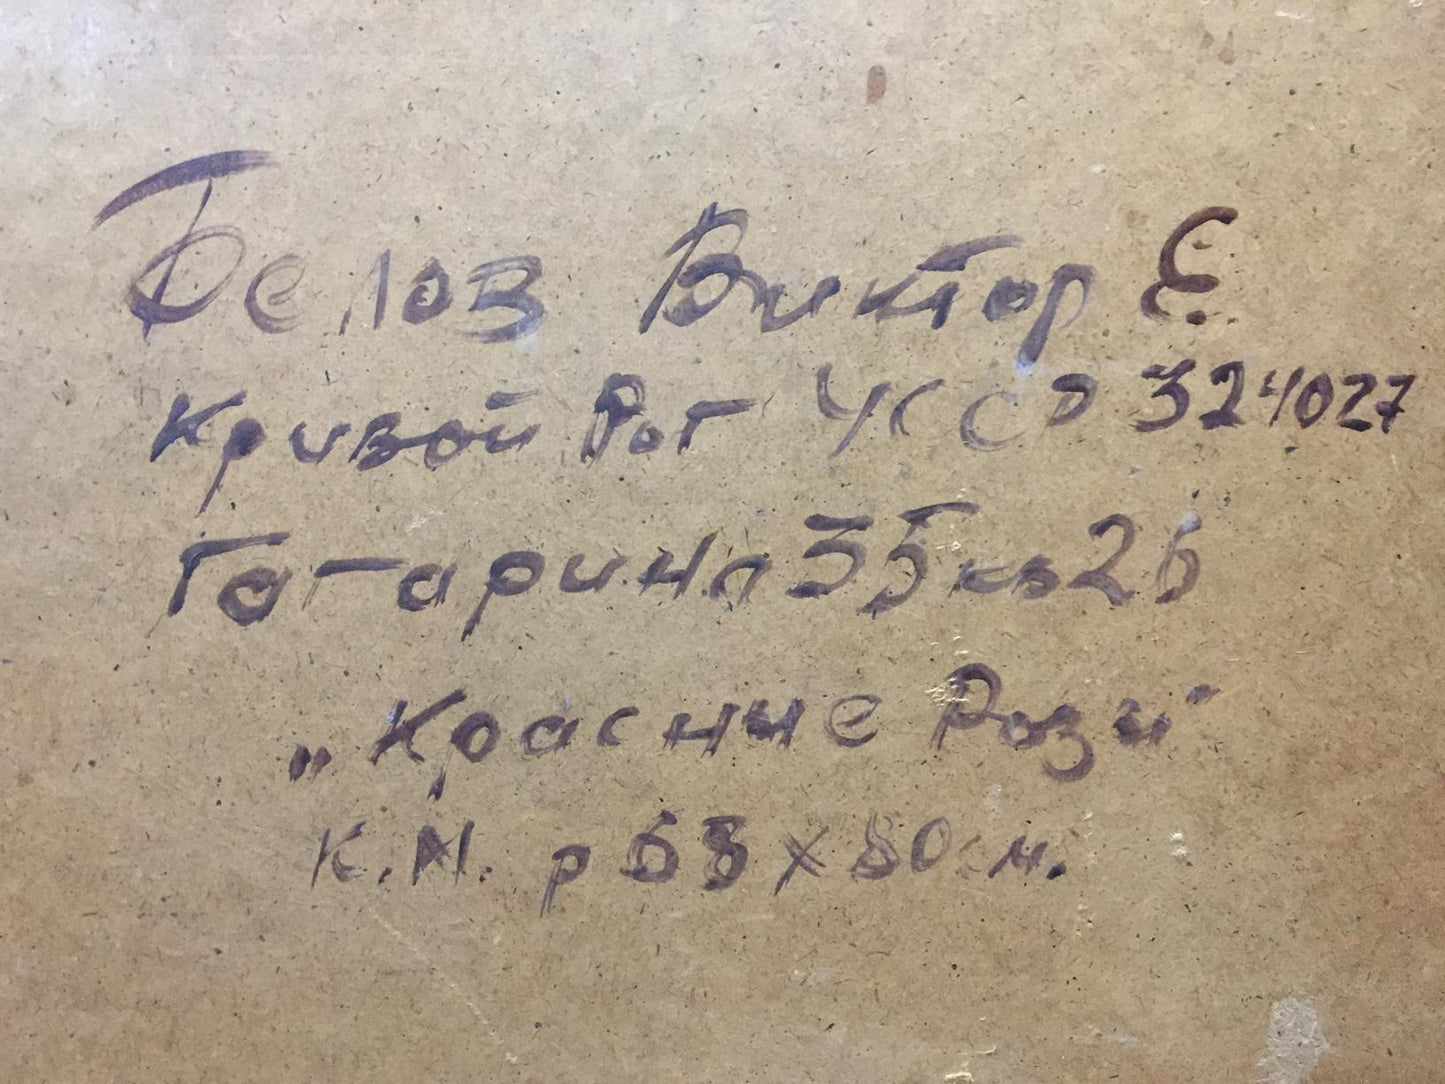 Белов Виктор Е
Кривой Рог УССР 324027
Гагарина 35 кв 26
„Красние Рози"
К.М. р 68 х 80 см.